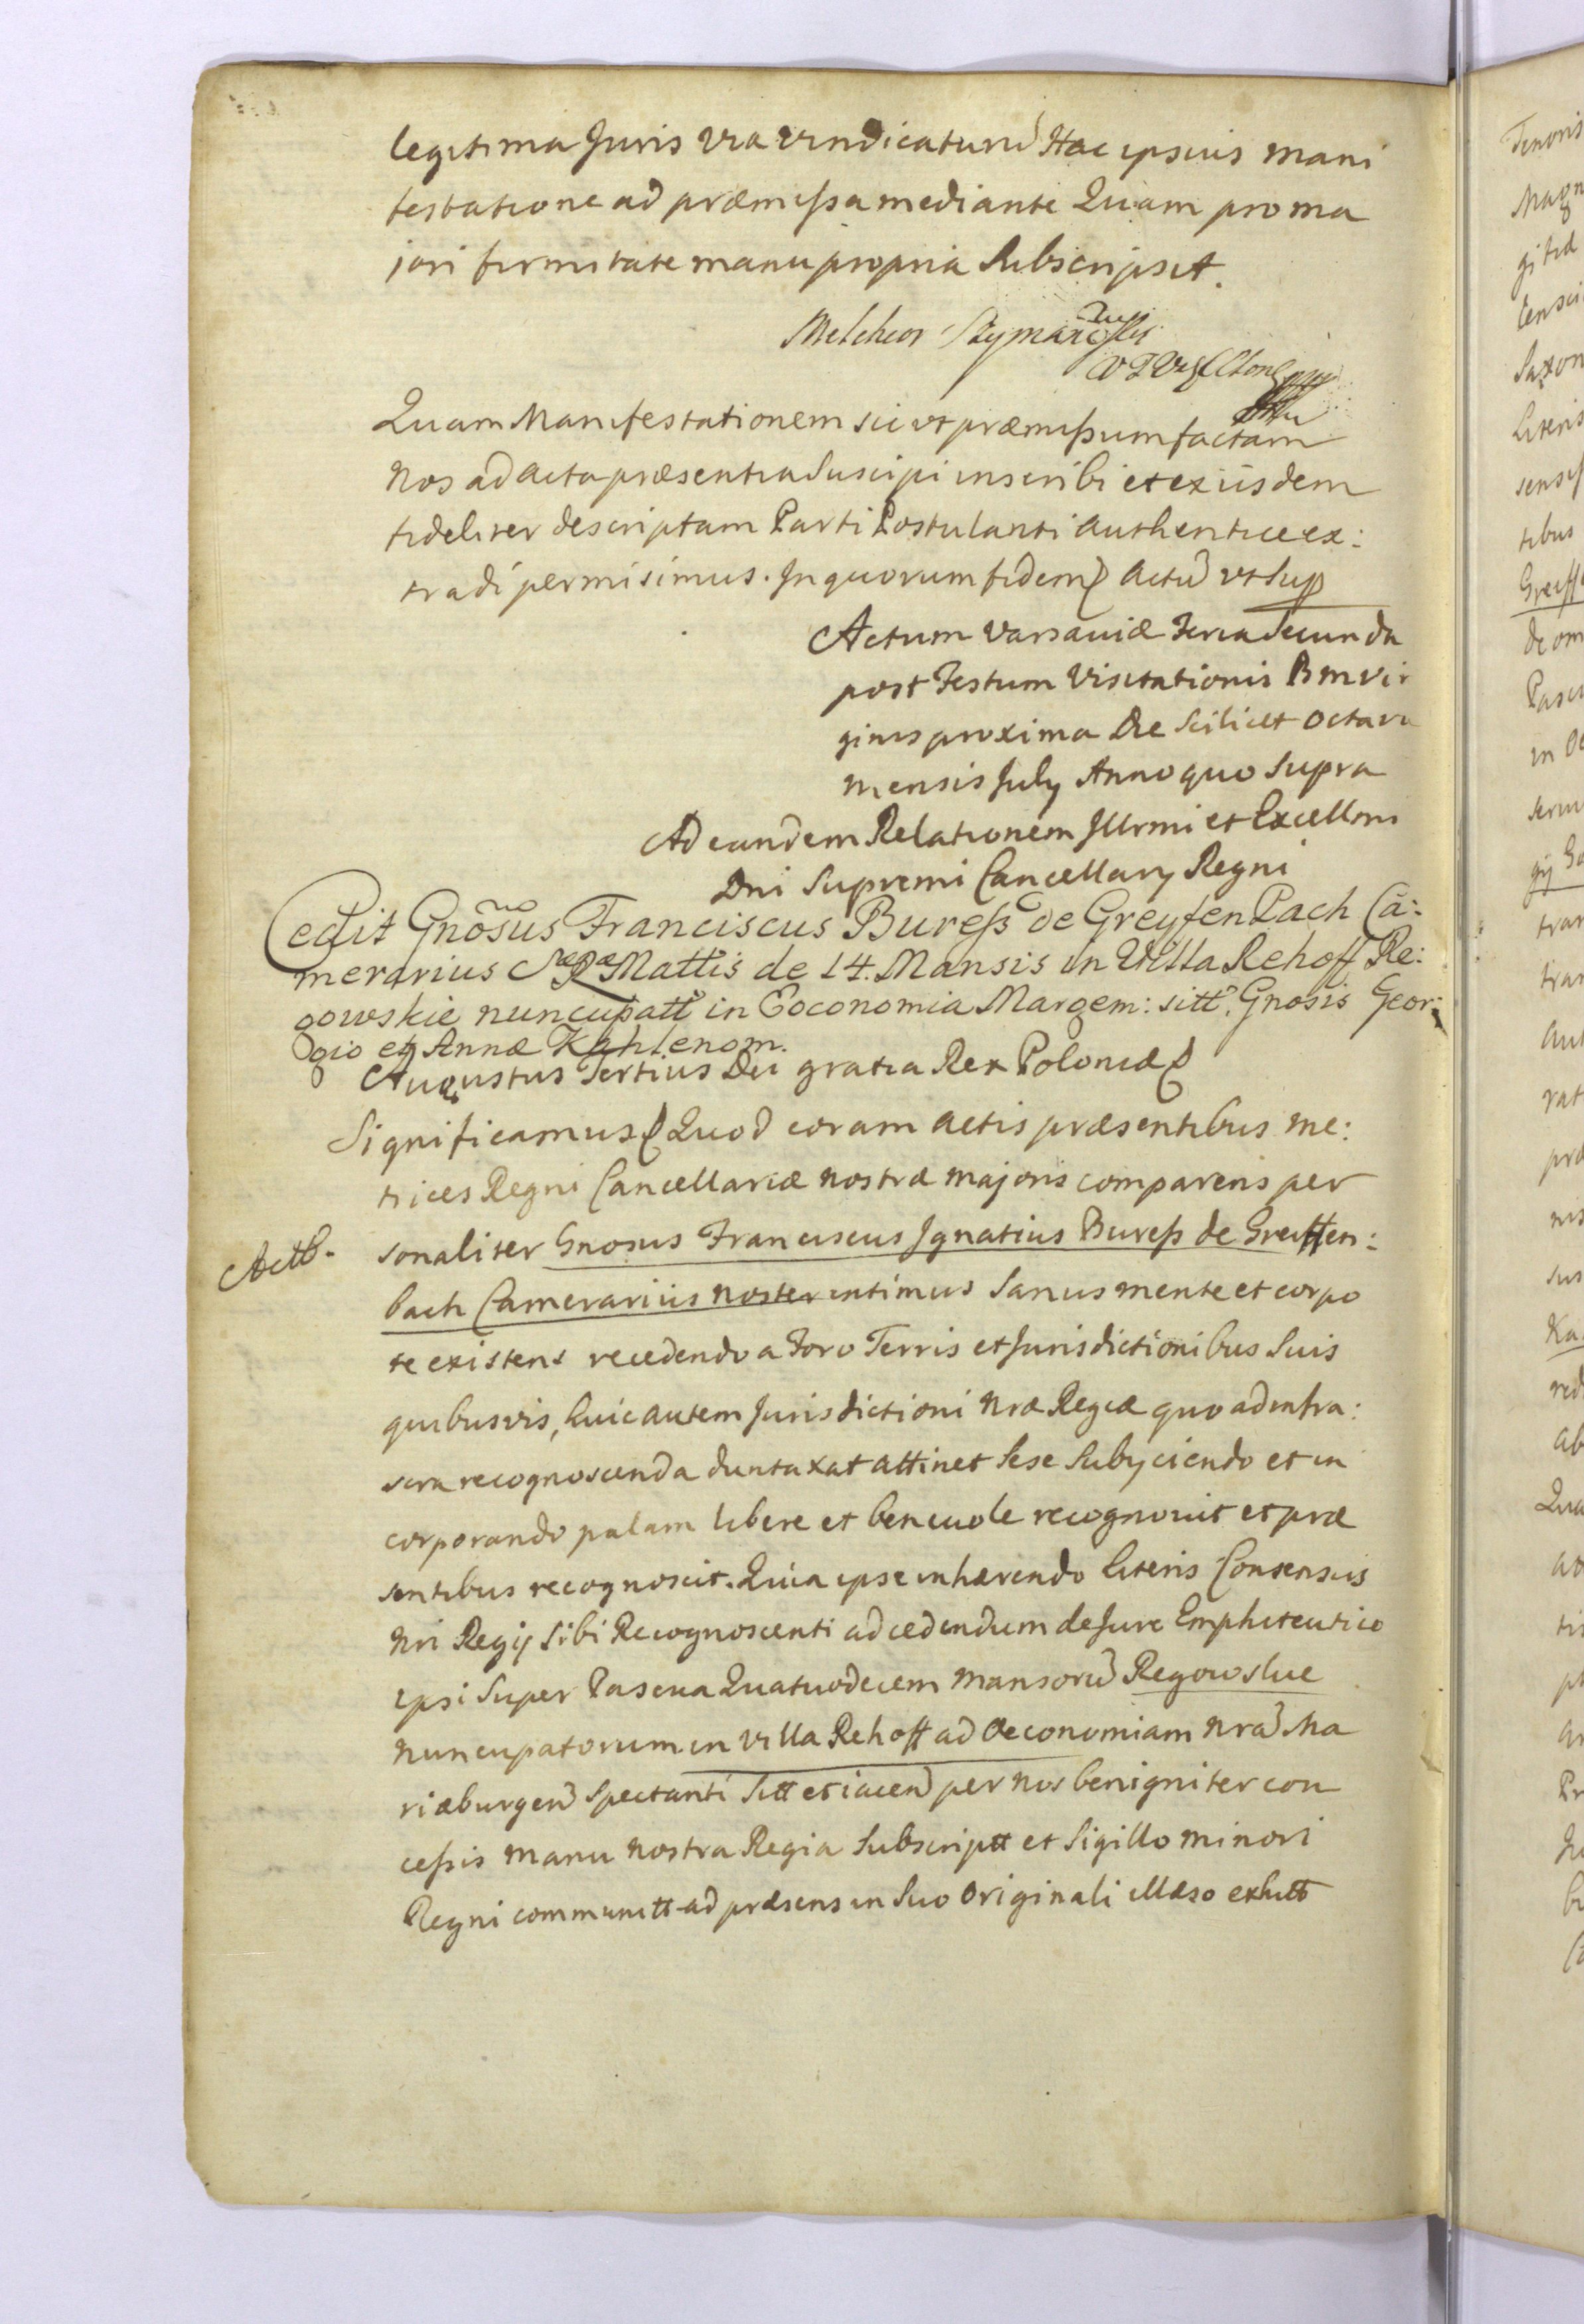 legitima Juris via vindicaturū Hac ipsius mani
festatione ad præmissa mediante Quam pro ma
jori firmitate manu propria Subscripsit.
Melchior
Quam Manifestationem sic vt præmissum factam
Nos ad Acta præsentia Suscipi inscribi et ex iisdem
fideliter descriptam Parti Postulanti Authentice ex:
tradi permisimus. In quorum fidem Actū vt Sup
Actum Varsaviæ Feria Secunda
post Festum Visitationis B M Vir
ginis proxima Die Scilicet Octava
mensis July Anno quo Supra
Ad eandem Relationem Illrmi et Excellmi
Dni Supremi Cancellary Regni
Cedit Gnosus Franciscus Buress de Greyfenbach Ca:
merarius S R Mattis de 14. Mansis in Villa Rehoff Re:
gowskie nuncupatt in Eoconomia Margem: sitt. Gnosis Geor:
gio et Annæ Kahlenom.
Augustus Tertius Dei gratia Rex Poloniæ
Significamus Quod coram Actis præsentibus Me:
trices Regni Cancellariæ nostræ majoris comparens per
Actb. sonaliter Gnosus Franciscus Ignatius Buress de Greiffen:
bach Camerarius noster intimus Sanus mente et corpo
re existens recedendo a Foro Terris et Jurisdictionibus Suis
quibusvis, huic autem Jurisdictioni nræ Regiæ quo ad infra:
scra recognoscenda duntaxat attinet Sese Subyciendo et in
corporando palam libere et benevole recognovit et præ
sentibus recognoscit. Quia ipse inhærendo literis Consensus
Nri Regy Sibi Recognoscenti ad cedendum de Jure Emphiteutico
ipsi Super Pascua Quatuordecem Mansorū Regowskie
nuncupatorum in Villa Rehoff ad Oeconomiam nrā Ma
riæburgen Spectanti Sitt et iacen per nos benigniter con
cessis manu nostra Regia Subscriptt et Sigillo minori
Regni communitt ad præsens in Suo Originali illæso exhibt